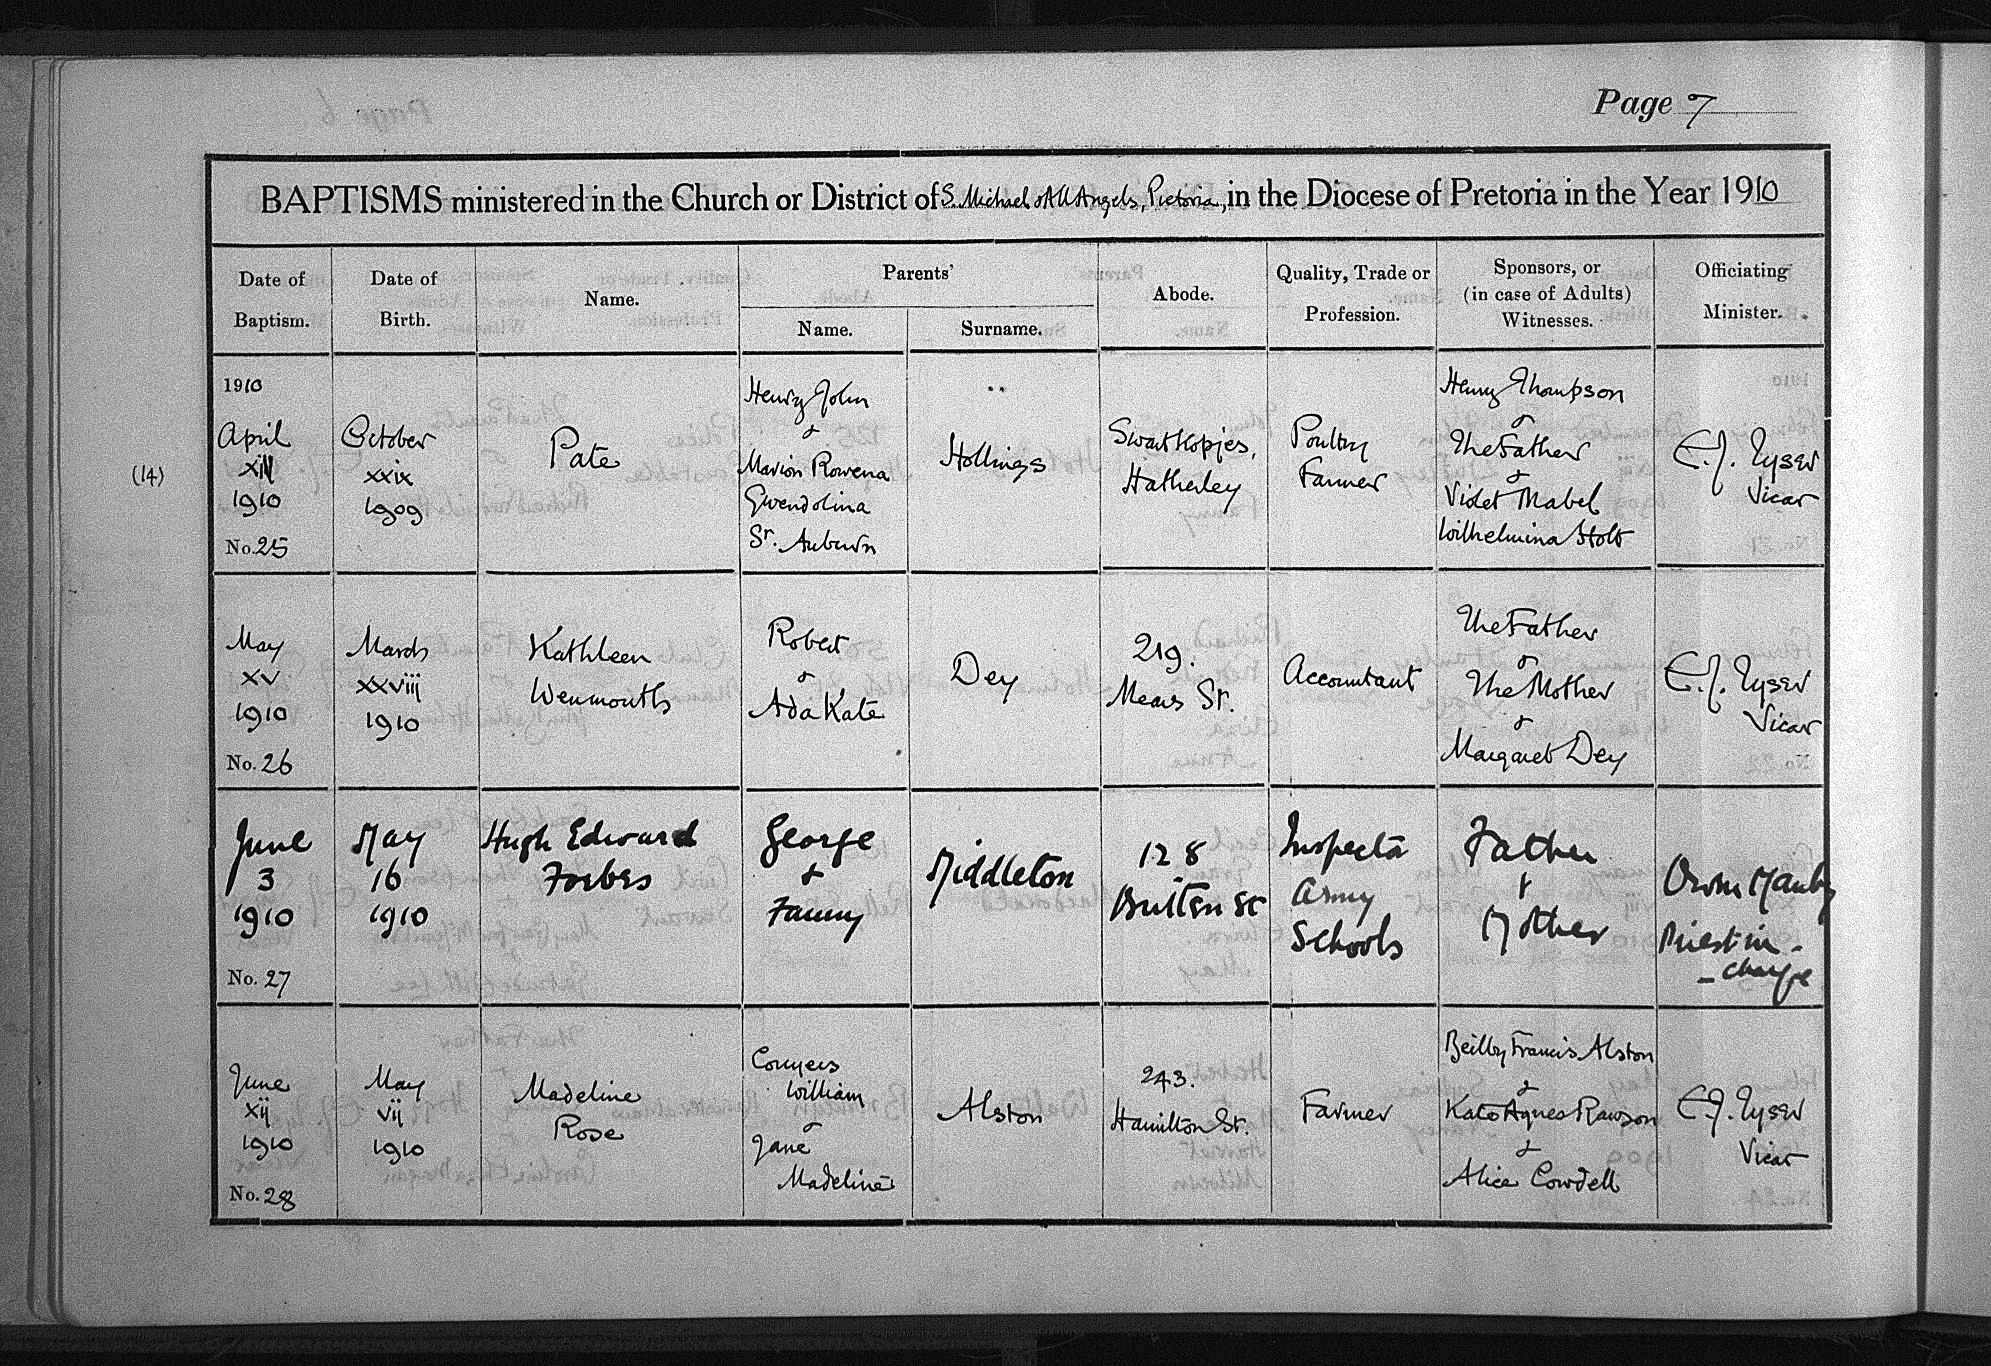 Page 7
BAPTISMS ministered in the Church or District of S. Michael & All Angels, Pretoria, in the Diocese of Pretoria in the Year 1910
Date of Baptism.
Date of Birth.
Name.
Parents'
Name.
Surname.
Abode.
Quality, Trade or Profession.
Sponsors, or (in case of Adults) Witnesses.
Officiating Minister.
(14)
1910
April
1910
No. 25
October
xxix
1909
Pate
Henry John
&
Marion Rowena
Gwendolina
St. Auburn
Hollings
Swartkopjes,
Hatherley
Poultry
Farmer
Henry Thompson
&
The Father
&
Violet Mabel
Wilhelmina Stolt
E.J. Tyser
Vicar
May
xv
1910
No. 26
March
xxviii
1910
Kathleen
Wenmouth
Robert
&
Ada Kate
Dey
219.
Mears St.
Accountant
The Father
&
The Mother
&
Margaret Dey
E.J. Tyser
Vicar
June
3
1910
No. 27
May
16
1910
Hugh Edward
Forbes
George
&
Fanny
Middleton
128
St
Inspector
Army
Schools
Father
&
Mother
Manby
Priest in-
-charge
June
xij
1910
No. 28
May
vij
1910
Madeline
Rose
Conyers
William
&
Jane
Madeline
Alston
243.
Hamilton St.
Farmer
Beilby Francis Alston
&
Kate Agnes Rawson
&
Alice Cowdell
E.J. Tyser
Vicar